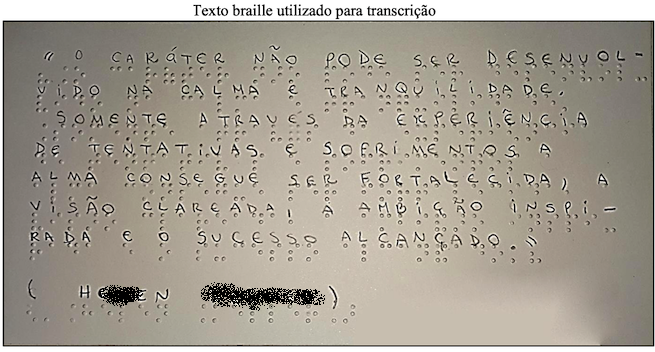 Texto braille utilizado para transcrição
" O CARÁTER NÃO PODE SER DESENVOL-
VIDO NA CALMA E TRANQUILIDADE.
SOMENTE ATRAVES DA EXPERIÊNCIA
DE TENTATIVAS E SOFRIMENTOS A
ALMA CONSEGUE SER FORTALECIDA, A
VISÃO CLAREADA, A AMBIÇÃO INSPI-
RADA E O SUCESSO ALCANÇADO."
( )